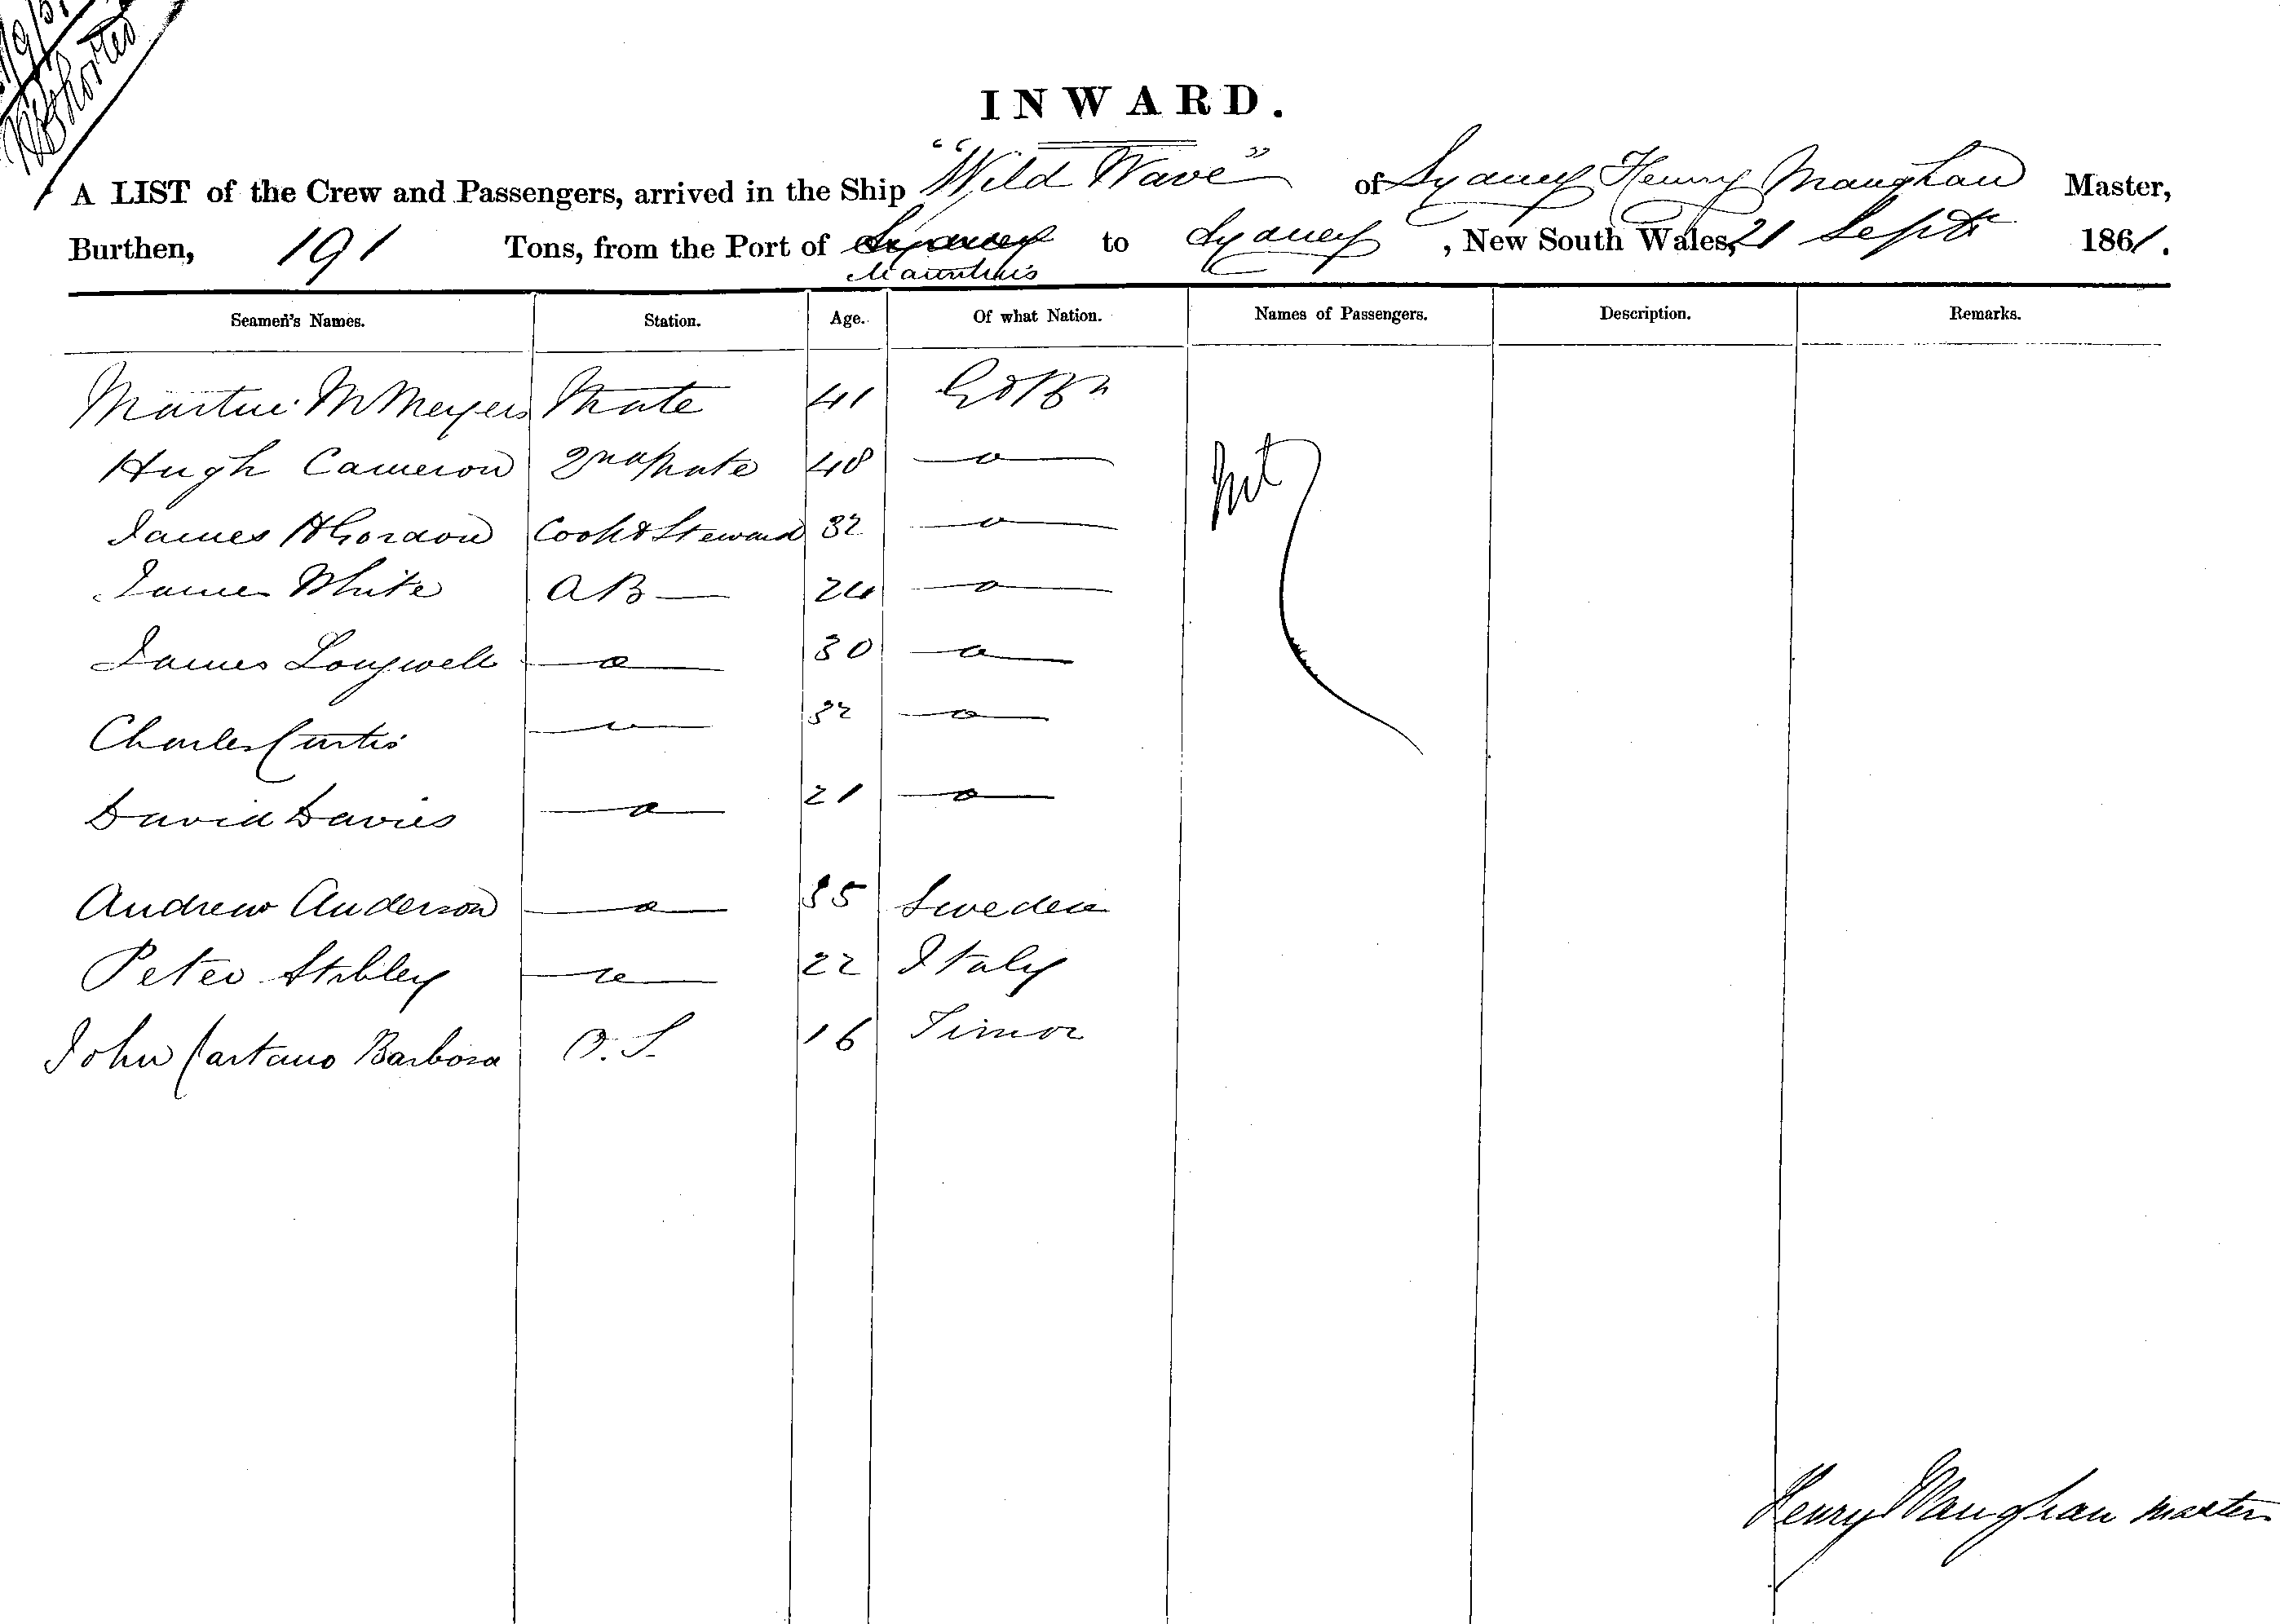 INWARD.
A LIST of the Crew and Passengers, arrived in the Ship "Wild Wave" of Sydney Henry Maughan Master,
Burthen, 191 Tons, from the Port of Sydney to Sydney, New South Wales, 21 Septr 1861.
Mauritius
Seamen's Names. Station. Age. Of what Nation. Names of Passengers. Description. Remarks.
Martin M Meyers Mate 41 Gt Bn
Hugh Cameron 2nd Mate 48 — o —
James H Gordon Cook & Steward 32 — o —
James White AB — 24 — o —
James Longwell — o — 30 — o —
Charles Curtis — o — 32 — o —
David Davies — o — 21 — o —
Andrew Anderson — o — 35 Sweden
Peter Stibley — o — 22 Italy
John Caetano Barbosa O.S. 16 Timor
Henry Maughan master